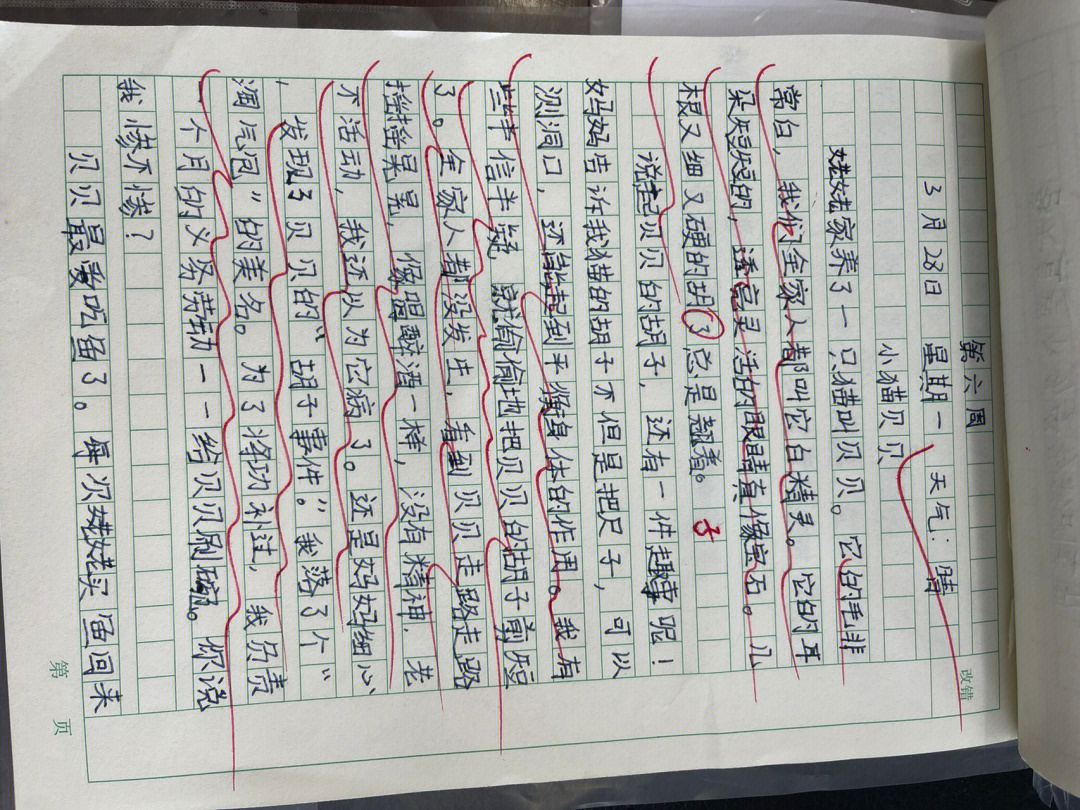 第六周
3月28日 星期一 天气：晴
小猫贝贝
姥姥家养了一只猫叫贝贝。它的毛非
常白，我们全家人都叫它白精灵。它的耳
朵短短的，透亮灵活的眼睛真像宝石。几
根又细又硬的胡子总是翘着。
子
说起贝贝的胡子，还有一件趣事呢！
妈妈告诉我猫的胡子不但是把尺子，可以
测洞口，还能起到平衡身体的作用。我有
些半信半疑 就偷偷地把贝贝的胡子剪短
了。全家人都没发走，看到贝贝走路走路
摇摇晃晃，像喝醉酒一样，没有精神，老
不活动，我还以为它病了。还是妈妈细心
，发现了贝贝的“胡子事件。”我落了个“
淘气包”的美名。为了将功补过，我负责
一个月的义务劳动一一给贝贝刷碗。你说
我惨不惨？
贝贝最爱吃鱼了。每次姥姥买鱼回来
改错
第 页